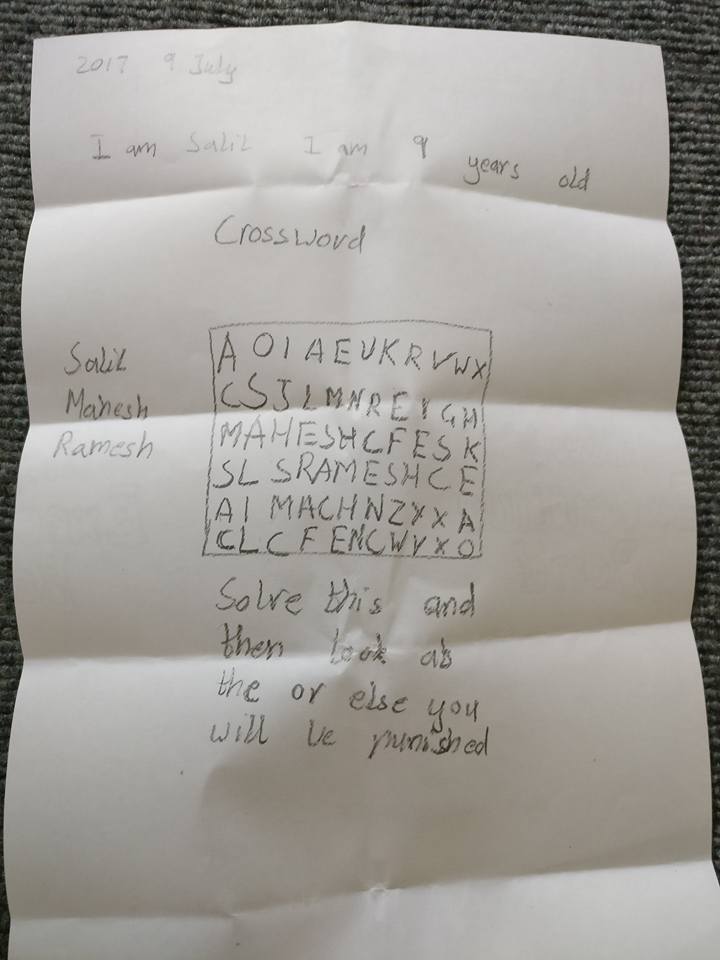 2017 9 July
I am Salil I am 9 years old
Crossword
Salil
Mahesh
Ramesh
A O I A E U K R V W X
C S J L M N R E I G H
M A H E S H C F E S K
S L S R A M E S H C E
A I M A C H N Z Y X A
C L C F E N C W V X O
Solve this and
then look ab
the or else you
will be punished